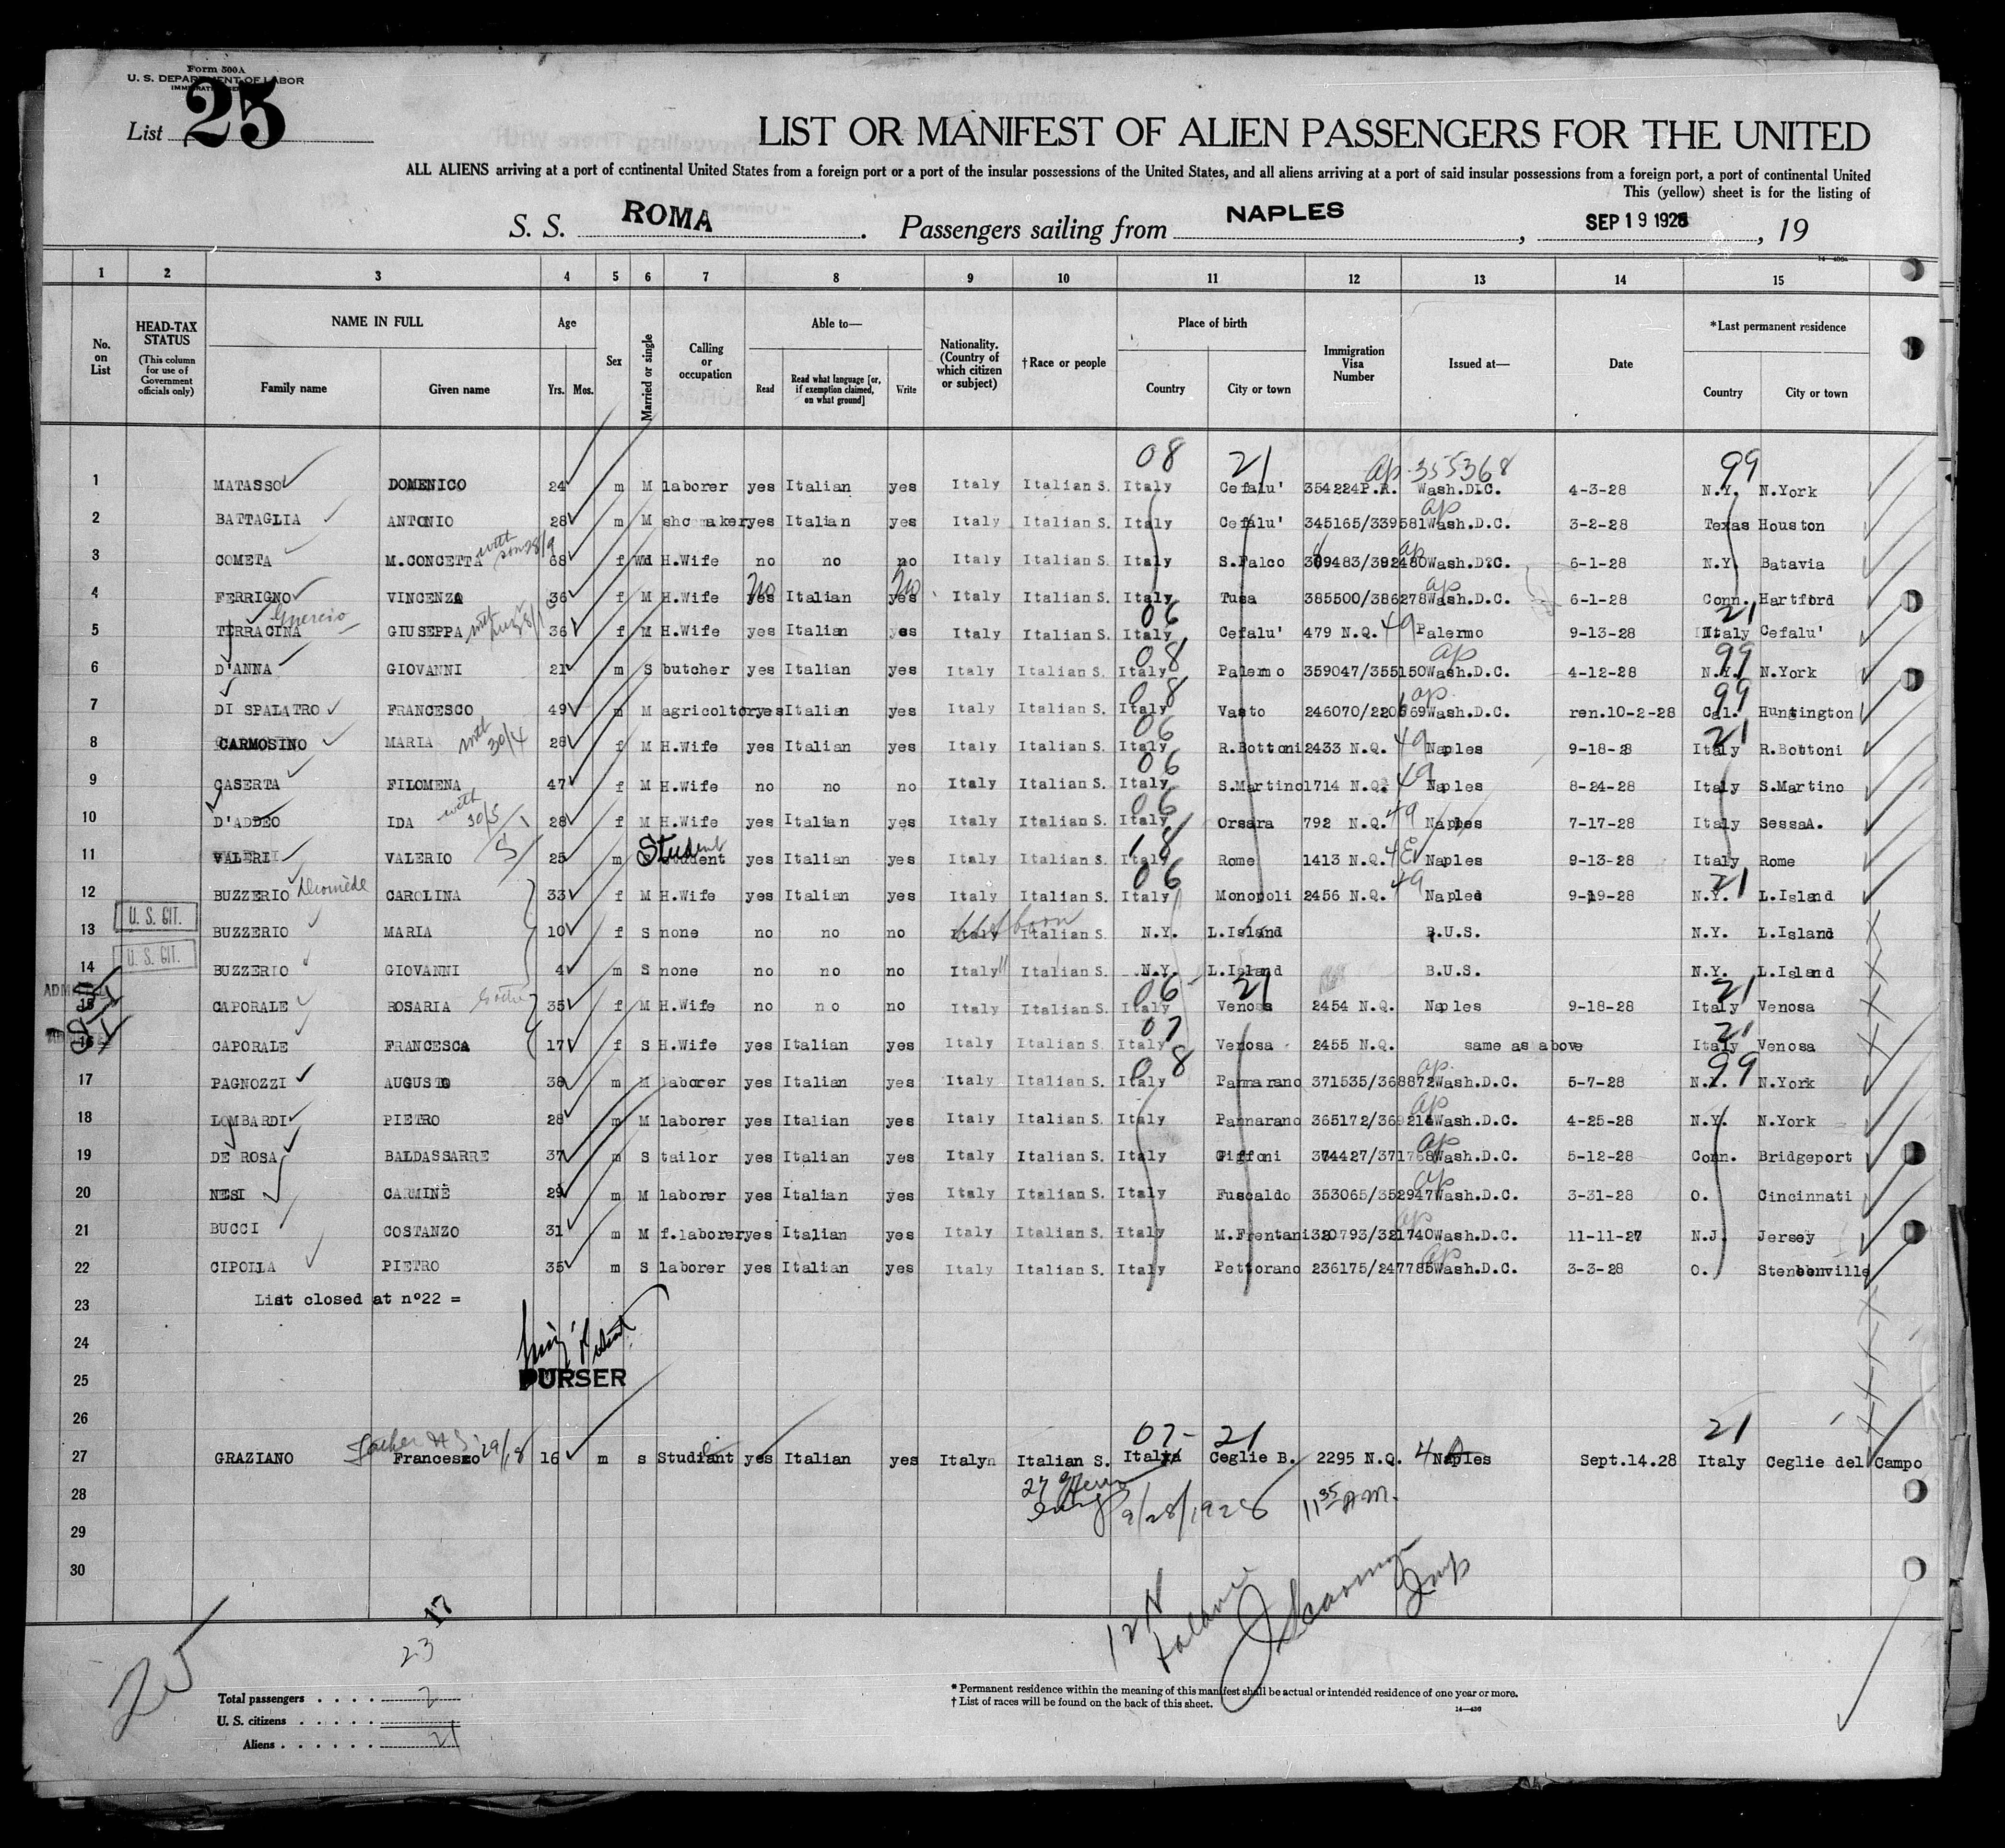 Form 500A
U. S. DEPARTMENT OF LABOR
List 25
LIST OR MANIFEST OF ALIEN PASSENGERS FOR THE UNITED
ALL ALIENS arriving at a port of continental United States from a foreign port or a port of the insular possessions of the United States, and all aliens arriving at a port of said insular possessions from a foreign port, a port of continental United
This (yellow) sheet is for the listing of
S. S. ROMA . Passengers sailing from NAPLES , SEP 19 1928 , 19
1 2 3 4 5 6 7 8 9 10 11 12 13 14 15
No. on List
HEAD-TAX STATUS (This column for use of Government officials only)
NAME IN FULL Family name Given name
Age Yrs. Mos.
Sex
Married or single
Calling or occupation
Able to— Read Read what language [or, if exemption claimed, on what ground] Write
Nationality. (Country of which citizen or subject)
†Race or people
Place of birth Country City or town
Immigration Visa Number
Issued at—
Date
*Last permanent residence Country City or town
08 21 ap. 355368 99
1 MATASSO DOMENICO 24 m M laborer yes Italian yes Italy Italian S. Italy Cefalu' 354224P.R. Wash.D.C. 4-3-28 N.Y. N.York
2 BATTAGLIA ANTONIO 28 m M shoemaker yes Italian yes Italy Italian S. Italy Cefalu' 345165/339581 ap Wash.D.C. 3-2-28 Texas Houston
3 COMETA M.CONCETTA with son 28/9 68 f Wd H.Wife no no no Italy Italian S. Italy S.Falco 389483/392480 ap Wash.D.C. 6-1-28 N.Y. Batavia
4 FERRIGNO VINCENZA 36 f M H.Wife yes no Italian yes no Italy Italian S. Italy Tusa 385500/386278 ap Wash.D.C. 6-1-28 Conn. Hartford
5 TERRACINA Guercio GIUSEPPA 36 f M H.Wife yes Italian yes Italy Italian S. Italy 06 Cefalu' 479 N.Q. 49 Palermo 9-13-28 Italy 21 Cefalu'
6 D'ANNA GIOVANNI 21 m S butcher yes Italian yes Italy Italian S. Italy 08 Palermo 359047/355150 ap Wash.D.C. 4-12-28 N.Y. 99 N.York
7 DI SPALATRO FRANCESCO 49 m M agricoltor yes Italian yes Italy Italian S. Italy 08 Vasto 246070/220569 ap Wash.D.C. ren.10-2-28 Cal. 99 Huntington
8 CARMOSINO MARIA with 30/4 28 f M H.Wife yes Italian yes Italy Italian S. Italy 06 R.Bottoni 2433 N.Q. 49 Naples 9-18-28 Italy 21 R.Bottoni
9 CASERTA FILOMENA 47 f M H.Wife no no no Italy Italian S. Italy 06 S.Martino 1714 N.Q. 49 Naples 8-24-28 Italy S.Martino
10 D'ADDEO IDA with 30/5 28 f M H.Wife yes Italian yes Italy Italian S. Italy 06 Orsara 792 N.Q. 49 Naples 7-17-28 Italy SessaA.
11 VALERI VALERIO 25 m Student student yes Italian yes Italy Italian S. Italy 18 Rome 1413 N.Q. 4E Naples 9-13-28 Italy Rome
12 BUZZERIO CAROLINA 33 f M H.Wife yes Italian yes Italy Italian S. Italy 06 Monopoli 2456 N.Q. 49 Naples 9-19-28 N.Y. 21 L.Island
U. S. CIT.
13 BUZZERIO MARIA 10 f S none no no no Italy Italian S. N.Y. L.Island B.U.S. N.Y. L.Island
U. S. CIT.
14 BUZZERIO GIOVANNI 4 m S none no no no Italy Italian S. N.Y. L.Island B.U.S. N.Y. L.Island
15 CAPORALE ROSARIA 35 f M H.Wife no no no Italy Italian S. Italy 06 Venosa 21 2454 N.Q. Naples 9-18-28 Italy 21 Venosa
16 CAPORALE FRANCESCA 17 f S H.Wife yes Italian yes Italy Italian S. Italy 07 Venosa 2455 N.Q. same as above Italy 21 Venosa
17 PAGNOZZI AUGUSTO 38 m M laborer yes Italian yes Italy Italian S. Italy 08 Pannarano 371535/368872 ap Wash.D.C. 5-7-28 N.Y. 99 N.York
18 LOMBARDI PIETRO 28 m M laborer yes Italian yes Italy Italian S. Italy Pannarano 365172/369214 ap Wash.D.C. 4-25-28 N.Y. N.York
19 DE ROSA BALDASSARRE 37 m S tailor yes Italian yes Italy Italian S. Italy Giffoni 374427/371768 ap Wash.D.C. 5-12-28 Conn. Bridgeport
20 NESI CARMINE 29 m M laborer yes Italian yes Italy Italian S. Italy Fuscaldo 353065/352947 ap Wash.D.C. 3-31-28 O. Cincinnati
21 BUCCI COSTANZO 31 m M f.laborer yes Italian yes Italy Italian S. Italy M.Frentani 320793/321740 ap Wash.D.C. 11-11-27 N.J. Jersey
22 CIPOLLA PIETRO 35 m S laborer yes Italian yes Italy Italian S. Italy Pettorano 236175/247785 ap Wash.D.C. 3-3-28 O. Stenbenville
23 List closed at n°22 =
24
25 PURSER
26
27 GRAZIANO Francesco 29/18 16 m s Student yes Italian yes Italy Italian S. Italy 07- Ceglie B. 21 2295 N.Q. 4 Naples Sept.14.28 Italy 21 Ceglie del Campo
28 9/28/1928 11 35 AM.
29
30
17
23
25
Total passengers . . . . 2
U. S. citizens . . . . .
Aliens . . . . . . 21
* Permanent residence within the meaning of this manifest shall be actual or intended residence of one year or more.
† List of races will be found on the back of this sheet.
14—430